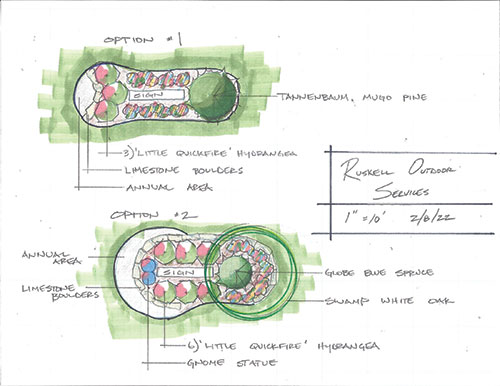 OPTION #1
SIGN
TANNENBAUM MUGO PINE
3) 'LITTLE QUICKFIRE' HYDRANGEA
LIMESTONE BOULDERS
ANNUAL AREA
RUSKELL OUTDOOR
SERVICES
1" = 10' 2/8/22
OPTION #2
ANNUAL
AREA
LIMESTONE
BOULDERS
SIGN
GLOBE BLUE SPRUCE
SWAMP WHITE OAK
6) 'LITTLE QUICKFIRE' HYDRANGEA
GNOME STATUE